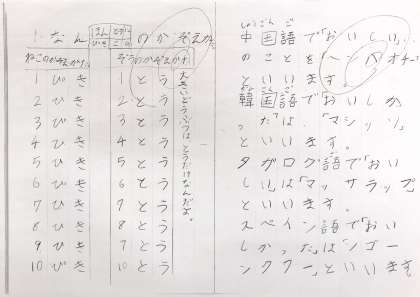 なん のかぞえかた
ねこのかぞえかた
1 びき
2 びき
3 びき
4 びき
5 びき
6 びき
7 びき
8 びき
9 びき
10 びき
ぞうのかぞえかた
1 とう
2 とう
3 とう
4 とう
5 とう
6 とう
7 とう
8 とう
9 とう
10 とう
大きいどうぶつは とうだけなんだよ。
中国語で「おいしい」
のことをヘンハオチー
といいます。
韓国語で「おいしか
った」は、「マシッソ」
といいます。
タガログ語で「おい
しい」は「マッサラップ」
といいます。
スペイン語で「おい
しかった」は「ノゴー
ンククー」といいます